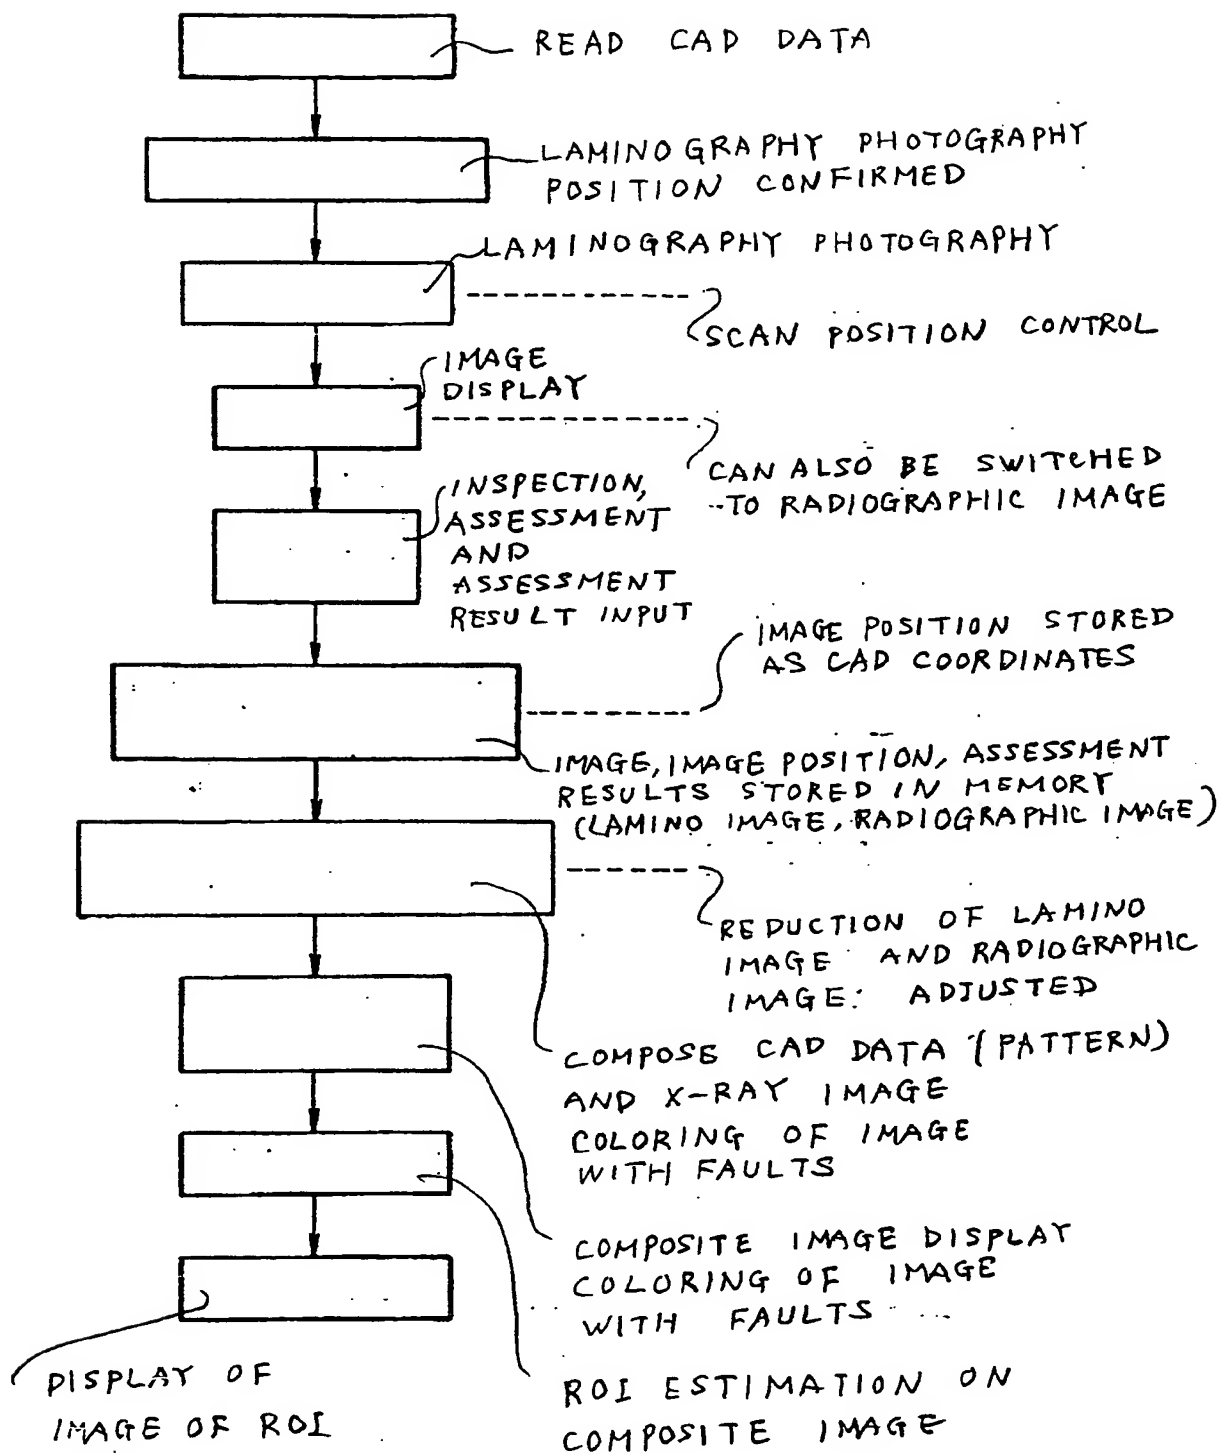 READ CAD DATA
LAMINOGRAPHY PHOTOGRAPHY
POSITION CONFIRMED
LAMINOGRAPHY PHOTOGRAPHY
SCAN POSITION CONTROL
IMAGE
DISPLAY
CAN ALSO BE SWITCHED
TO RADIOGRAPHIC IMAGE
INSPECTION,
ASSESSMENT
AND
ASSESSMENT
RESULT INPUT
IMAGE POSITION STORED
AS CAD COORDINATES
IMAGE, IMAGE POSITION, ASSESSMENT
RESULTS STORED IN MEMORY
(LAMINO IMAGE, RADIOGRAPHIC IMAGE)
REDUCTION OF LAMINO
IMAGE AND RADIOGRAPHIC
IMAGE: ADJUSTED
COMPOSE CAD DATA (PATTERN)
AND X-RAY IMAGE
COLORING OF IMAGE
WITH FAULTS
COMPOSITE IMAGE DISPLAY
COLORING OF IMAGE
WITH FAULTS
ROI ESTIMATION ON
COMPOSITE IMAGE
DISPLAY OF
IMAGE OF ROI